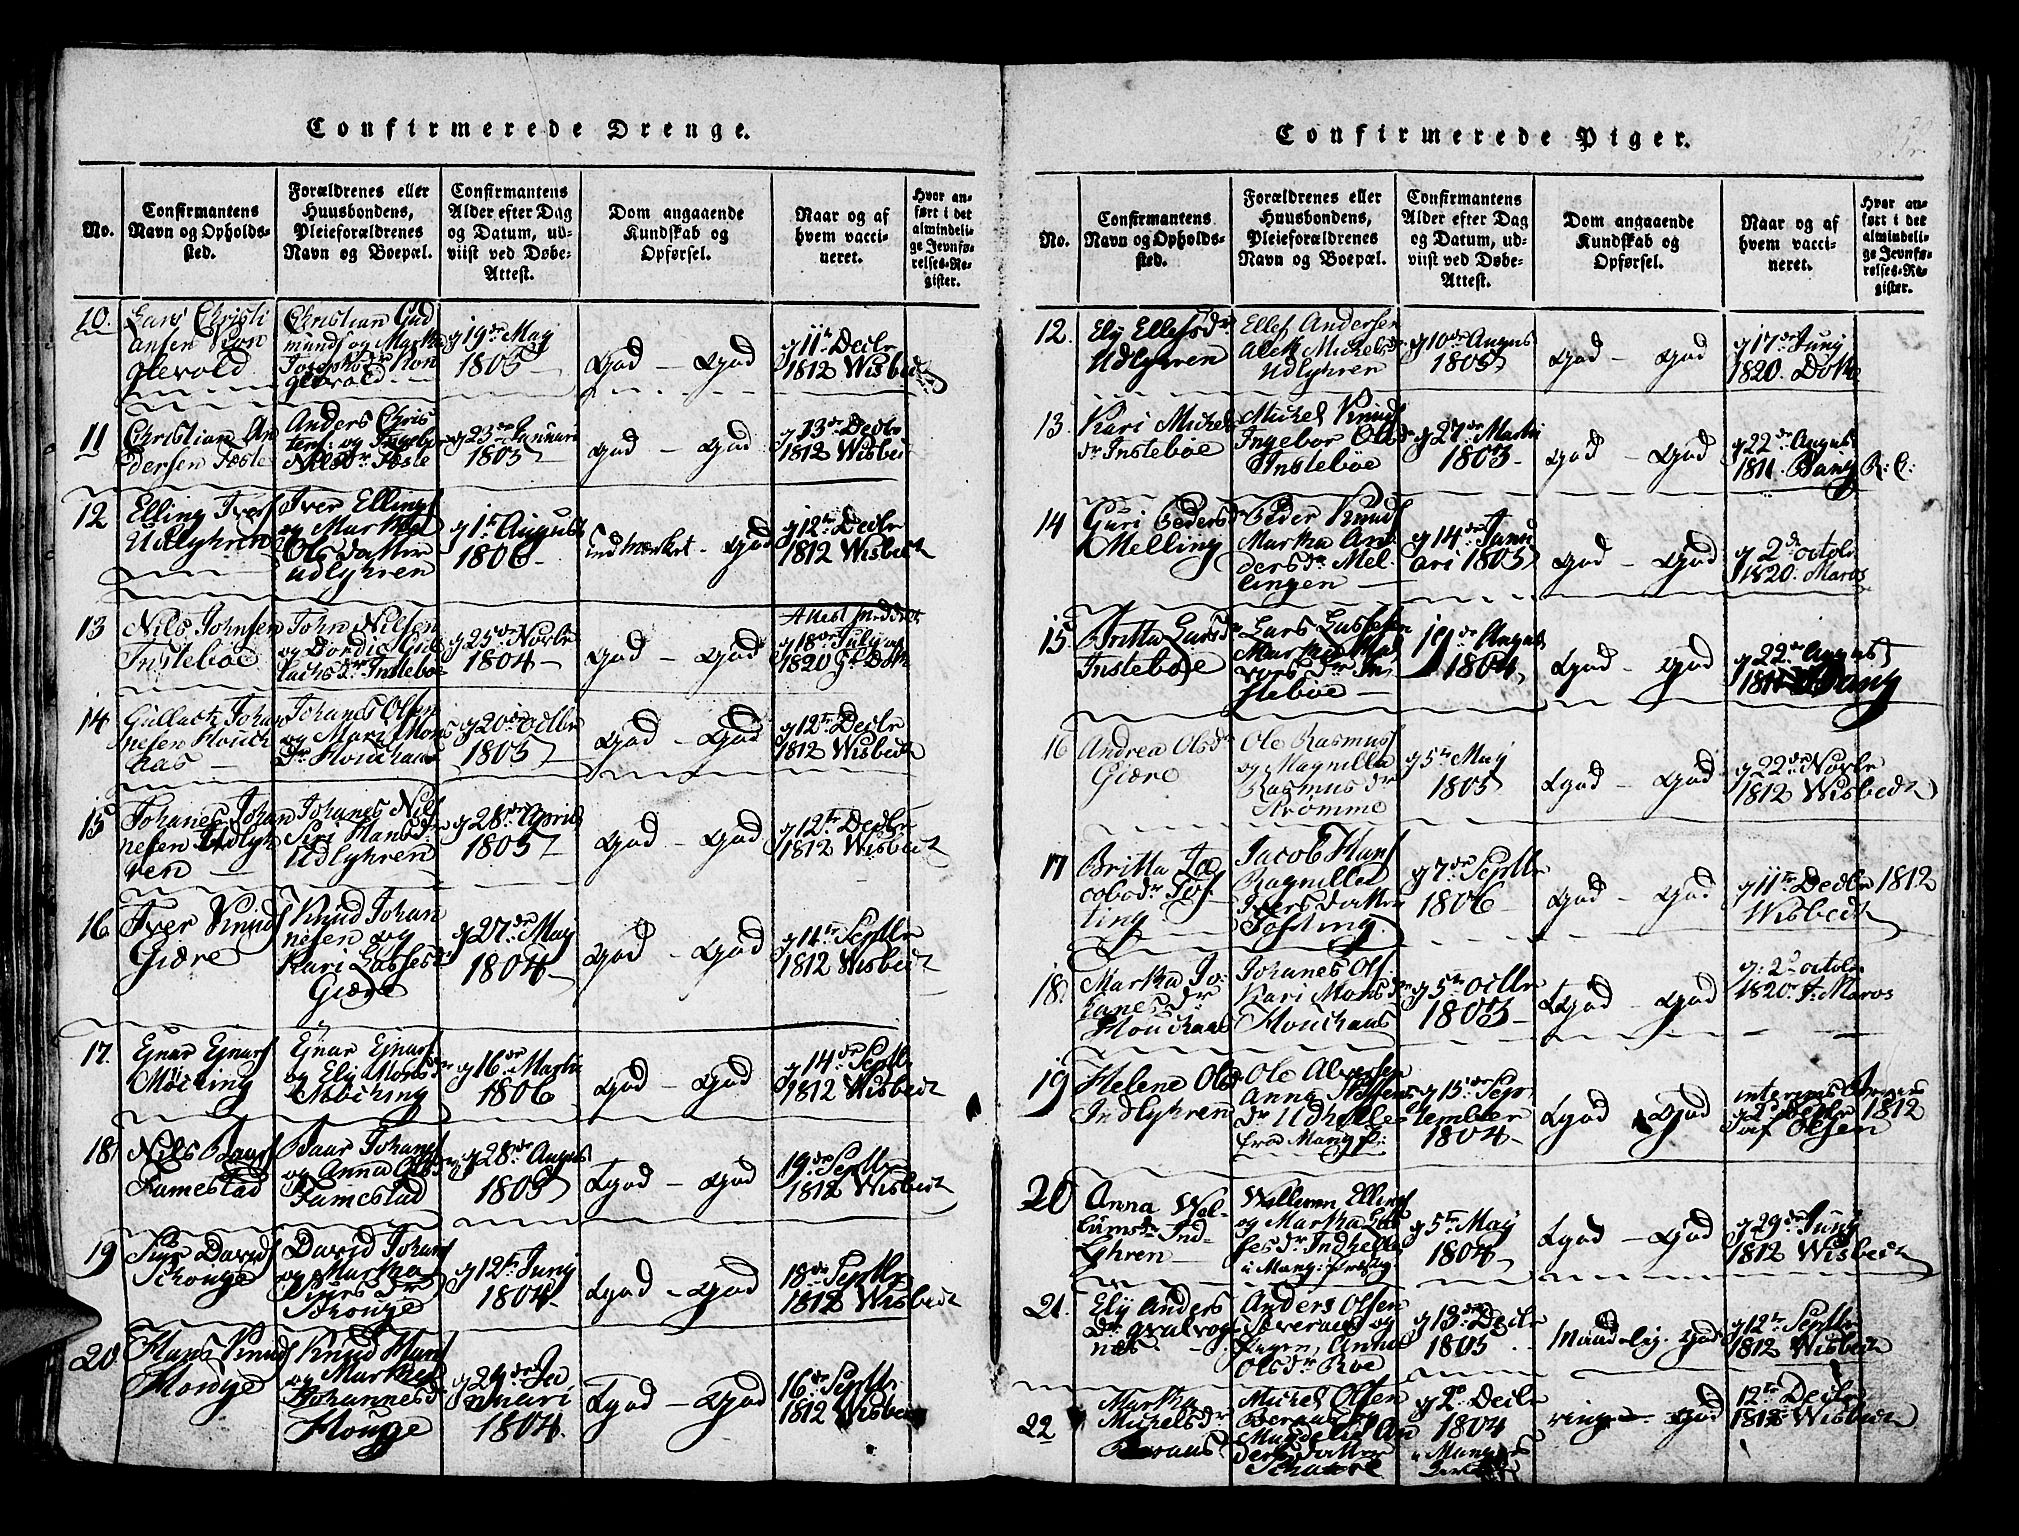 Confirmerede Drenge.
No.
Confirmantens
Navn og Opholds-
sted.
Forældrenes eller
Huusbondens,
Pleieforældrenes
Navn og Boepæl.
Confirmantens
Alder efter Dag
og Datum, ud-
viist ved Døbe-
Attest.
Dom angaaende
Kundskab og
Opførsel.
Naar og af
hvem vacci-
neret.
Hvor an-
ført i det
almindeli-
ge Jevnfø-
relses-Re-
gister.
10.
Lars Christi
ansen Kon
glevold
Christian Gud
munds og Martha
Josephsdr Kon
glevold
19de May
1805
God - God
11te Decbr
1812 Wisbech
11
Christian An
dersen Toste
Anders Chris
tens: og Ingebr
Nilsdr Toste
23de Januari
1805
God - God
13de Decbr
1812 Wisbech
12
Elling Ivers
Udlyhren
Iver Ellings
og Martha
Ols datter
Udlyhren
1te August
1806
- God
12te Decbr
1812 Wisbech
13
Nils Johnsen
Instebøe
John Nilsen
og Dordie
Instebøe
25de Novbr
1804
God - God
Attest
18de July
1820
14
Gullach Johan
nesen Houck
has
Johanes Olsen
og Mari Mons
dr Houchaas
20de Octbr
1805
God - God
12te Decbr
1812 Wisbech
15
Johanes Johan
nesen Udlyh
ren
Johanes Nils
Siri Hansdr
Udlyhren
28de April
1805
God - God
12te Decbr
1812 Wisbech
16
Iver Knuds
Giære
Knud Johan
nesen og
Kari Lassesdr
Giære
27de May
1804
God - God
11te Septbr
1812 Wisbech
17.
Ejnar Ejnars
Møcking
Ejnar Ejnars
og Ely Monsdr
Møcking
16de Martii
1806
God - God
14de Septbr
1812 Wisbech
18
Nils Baars
Famestad
Baar Johans
og Anna Olsdr
Famestad
28de Augus
1805
God - God
19de Septbr
1812 Wisbech
19
Siur Davids
Schouge
David Johans
og Martha
Siursdr
Schouge
12te Juny
1804
God - God
18de Septbr
1812 Wisbech
20
Hans Knuds
Houge
Knud Hans
og Martha
Johannesdr
Houge
24de Ja
nuari
1804
God - God
16de Septbr
1812 Wisbech
Confirmerede Piger.
No.
Confirmantens
Navn og Opholds-
sted.
Forældrenes eller
Huusbondens,
Pleieforældrenes
Navn og Boepæl.
Confirmantens
Alder efter Dag
og Datum, ud-
viist ved Døbe-
Attest.
Dom angaaende
Kundskab og
Opførsel.
Naar og af
hvem vacci-
neret.
Hvor an-
ført i det
almindeli-
ge Jevnfø-
relses-Re-
gister.
12.
Ely Ellefsdr
Udlyhren
Ellef Andersen
Alett Michelsdr
Udlyhren
10de Augus
1805
God - God
17de Juny
1820.
13.
Kari Michels
dr Instebøe
Michel Knuds
Ingebor Olsdr
Instebøe
27de Martii
1805
God - God
22de Augus
1811 Bang
14
Guri Pedersdr
Melling
Peder Knuds
Martha An
dersdr Mel
lingen
14de Janu
ari 1805
God - God
2de octobr
1820. Maros
15
Britta Larsdr
Instebøe
Lars Lassesen
Martha
In
stebøe
19de Augus
1804
God - God
22de Augus
1811 Bang
16
Andrea Olsdr
Giære
Ole Rasmus
og Magnilla
Rasmusdr
Strømme
5te May
1805
God - God
22de Novbr
1812 Wisbech
17
Britta Ja
cobsdr Tof
ting
Jacob Hans
Ragnilla
Ivers datter
Tofting
7de Septbr
1806
God - God
11te Decbr 1812
Wisbech
18.
Martha Jo
hanesdr
Houchaas
Johanes Ols
Kari Monsdr
Houchaas
5te Octbr
1805
God - God
2de octobr
1820 Maros
19
Helene Olsdr
Indlyhren
Ole Alversen
Anna Steffens
dr Udhelle
15de Sep
tember
1804
God - God
Decbr 1812
Olsen
20
Anna Wel
lumsdr Ind
lyhren
Wellum Ellings
og Martha Las
sesdr Indhelle
5te May
1804
God - God
29de Juny
1812 Wisbech
21.
Ely Anders
dr
Anders Olsen
Anna
Olsdr Roe
13de Decbr
1805
Maadelig. God
12te Septbr
1812 Wisbech
22
Martha
Michelsdr
Michel Olsen
An
ders datter
2de Decbr
1804
ringe - God
12te Decbr
1812 Wisbech